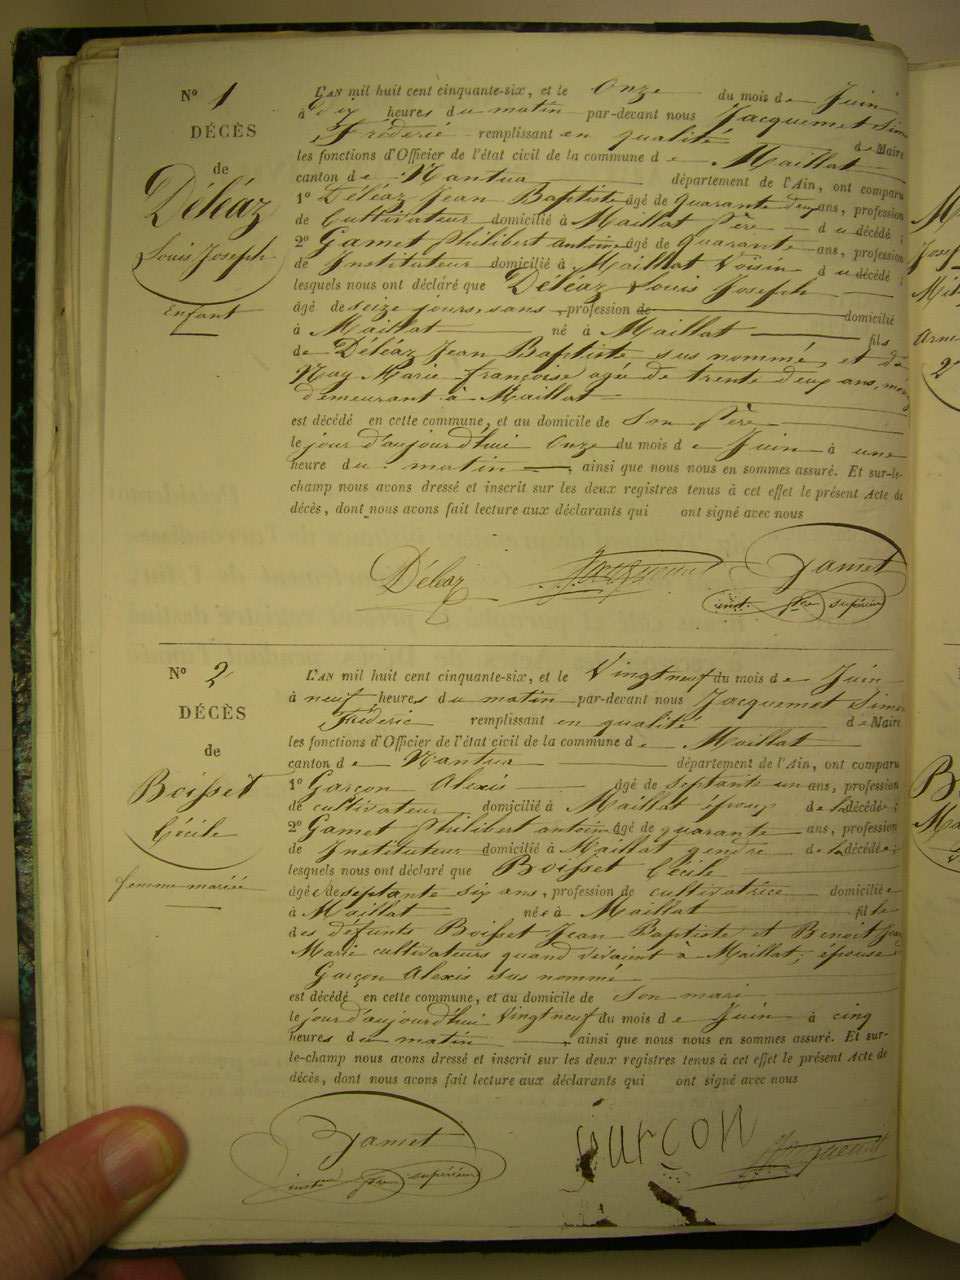 N° 1
DÉCÈS
de
Déléaz
Louis Joseph
Enfant
L'AN mil huit cent cinquante-six, et le Onze du mois de Juin
à dix heures du matin par-devant nous Jacquemet Sim
Fréderic remplissant en qualité de Maire
les fonctions d'Officier de l'état civil de la commune de Maillat
canton de Nantua département de l'Ain, ont comparu
1° Déléaz Jean Baptiste âgé de quarante deux ans, profession
de Cultivateur domicilié à Maillat Père du décédé ;
2° Gamet Philibert antoine âgé de quarante ans, profession
de Instituteur domicilié à Maillat Voisin du décédé ;
lesquels nous ont déclaré que Déléaz Louis Joseph
âgé de seize jours, sans profession de domicilié
à Maillat né à Maillat fils
de Déléaz Jean Baptiste sus nommé, et de
May Marie françoise agée de trente deux ans,
demeurant à Maillat
est décédé en cette commune, et au domicile de Son Père
le jour d'aujourd'hui Onze du mois de Juin à une
heure du matin ; ainsi que nous nous en sommes assuré. Et sur-le-
champ nous avons dressé et inscrit sur les deux registres tenus à cet effet le présent Acte de
décès, dont nous avons fait lecture aux déclarants qui ont signé avec nous
Déléaz Gamet
inst. supérieur
N° 2
DÉCÈS
de
Boisset
Cécile
femme mariée
L'AN mil huit cent cinquante-six, et le Vingt neuf du mois de Juin
à neuf heures du matin par-devant nous Jacquemet Simon
Fréderic remplissant en qualité de Maire
les fonctions d'Officier de l'état civil de la commune de Maillat
canton de Nantua département de l'Ain, ont comparu
1° Garçon Alexis âgé de septante un ans, profession
de cultivateur domicilié à Maillat époux de la décédée ;
2° Gamet Philibert antoine âgé de quarante ans, profession
de Instituteur domicilié à Maillat gendre de la décédée ;
lesquels nous ont déclaré que Boisset Cécile
âgée de septante six ans, profession de cultivatrice domiciliée
à Maillat née à Maillat fille
des défunts Boisset Jean Baptiste et Benoit
Marie cultivateurs quand vivaint à Maillat ; épouse
Garçon Alexis sus nommé
est décédé en cette commune, et au domicile de Son mari
le jour d'aujourd'hui Vingt neuf du mois de Juin à cinq
heures du matin , ainsi que nous nous en sommes assuré. Et sur-
le-champ nous avons dressé et inscrit sur les deux registres tenus à cet effet le présent Acte de
décès, dont nous avons fait lecture aux déclarants qui ont signé avec nous
Gamet garçon
supérieur